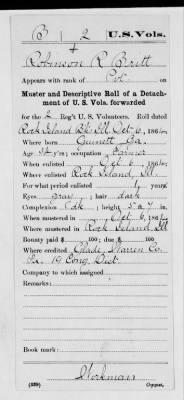 B 2 U.S. Vols.
Robinson R Britt
Appears with rank of Pvt. on
Muster and Descriptive Roll of a Detach-
ment of U. S. Vols. forwarded
for the 2 Reg't U. S. Volunteers. Roll dated
Rock Island Bks Ill Oct 6, 1864.
Where born Gwinett Ga.
Age yrs; occupation Farmer
When enlisted Oct 6, 1864.
Where enlisted Rock Island, Ill.
For what period enlisted 1 years.
Eyes gray; hair dark
Complexion Dk; height 5 ft. 7 in.
When mustered in Oct 6, 1864.
Where mustered in Rock Island Ill
Bounty paid $ 100; due $ 100.
Where credited Glade, Warren Co.
Pa. 19 Cong. Dist.
Company to which assigned
Remarks:
Book mark:
Workman
(339) Copyist.